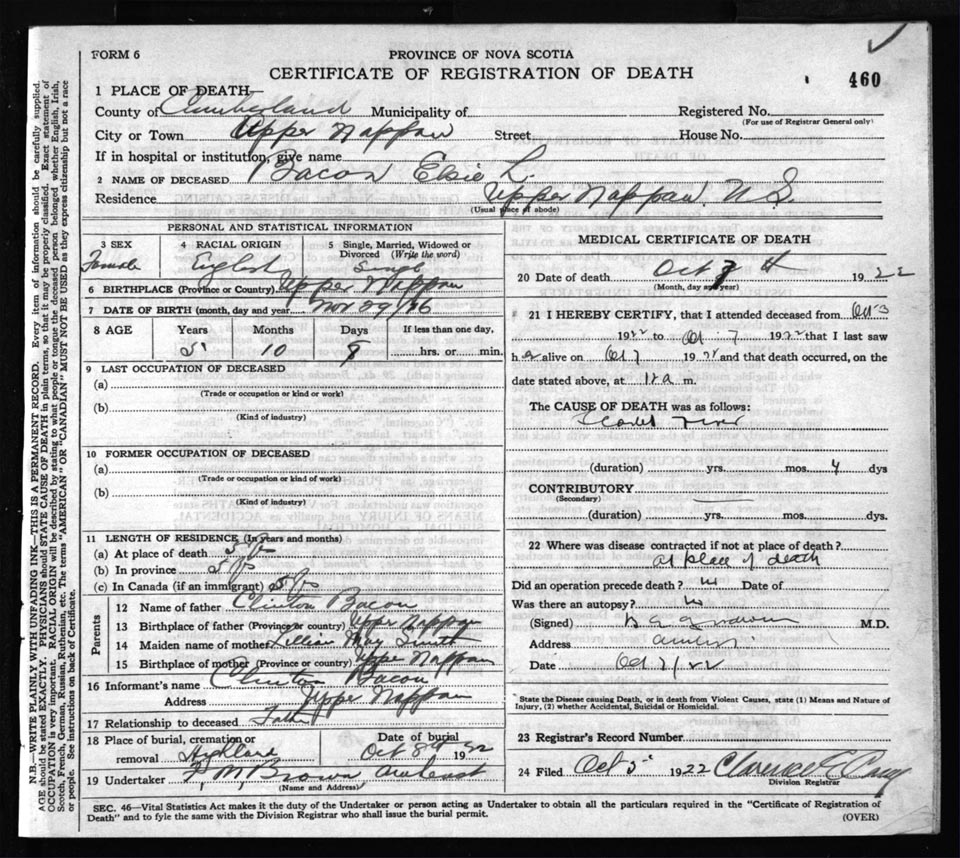 FORM 6
PROVINCE OF NOVA SCOTIA
CERTIFICATE OF REGISTRATION OF DEATH
460
1 PLACE OF DEATH—
County of Cumberland Municipality of
Registered No.
(For use of Registrar General only)
City or Town Upper Nappan Street
House No.
If in hospital or institution, give name
2 NAME OF DECEASED Bacon Elsie L.
Residence Upper Nappan N.S.
(Usual place of abode)
PERSONAL AND STATISTICAL INFORMATION
3 SEX
Female
4 RACIAL ORIGIN
English
5 Single, Married, Widowed or Divorced (Write the word)
Single
6 BIRTHPLACE (Province or Country) Upper Nappan
7 DATE OF BIRTH (month, day and year) Nov 29/16
8 AGE Years Months Days If less than one day,
5 10 8 hrs. or min.
9 LAST OCCUPATION OF DECEASED
(a)
(Trade or occupation or kind or work)
(b)
(Kind of industry)
10 FORMER OCCUPATION OF DECEASED
(a)
(Trade or occupation or kind of work)
(b)
(Kind of industry)
11 LENGTH OF RESIDENCE (In years and months)
(a) At place of death 5
(b) In province 5
(c) In Canada (if an immigrant) 5
Parents
12 Name of father Clinton Bacon
13 Birthplace of father (Province or country) Upper Nappan
14 Maiden name of mother Lillian May Smith
15 Birthplace of mother (Province or country) Upper Nappan
16 Informant's name Clinton Bacon
Address Upper Nappan
17 Relationship to deceased Father
18 Place of burial, cremation or removal Highland
Date of burial
Oct 8th 1922
19 Undertaker F. M. Brown Amherst
(Name and Address)
MEDICAL CERTIFICATE OF DEATH
20 Date of death Oct 7th 1922
(Month, day and year)
21 I HEREBY CERTIFY, that I attended deceased from Oct 3
1922 to Oct 7 1922 that I last saw
h er alive on Oct 7 1922 and that death occurred, on the
date stated above, at 11 a m.
The CAUSE OF DEATH was as follows:
Scarlet Fever
(duration) yrs. mos. 4 dys
CONTRIBUTORY
(Secondary)
(duration) yrs. mos. dys.
22 Where was disease contracted if not at place of death?
at place of death
Did an operation precede death? no Date of
Was there an autopsy? no
(Signed) M.D.
Address Amherst
Date Oct 7/22
* State the Disease causing Death, or in death from Violent Causes, state (1) Means and Nature of
Injury, (2) whether Accidental, Suicidal or Homicidal.
23 Registrar's Record Number
24 Filed Oct 5 1922 Clarence E
Division Registrar
SEC. 46—Vital Statistics Act makes it the duty of the Undertaker or person acting as Undertaker to obtain all the particulars required in the "Certificate of Registration of
Death" and to fyle the same with the Division Registrar who shall issue the burial permit.
(OVER)
N.B.—WRITE PLAINLY WITH UNFADING INK—THIS IS A PERMANENT RECORD. Every item of information should be carefully supplied.
AGE should be stated EXACTLY. PHYSICIANS should STATE CAUSE OF DEATH in plain terms, so that it may be properly classified. Exact statement of
OCCUPATION is very important. RACIAL ORIGIN will be described by stating to what people or tongue the deceased person belonged whether English, Irish,
Scotch, French, German, Russian, Ruthenian, etc. The terms "AMERICAN" OR "CANADIAN" MUST NOT BE USED as they express citizenship but not a race
or people. See instructions on back of Certificate.